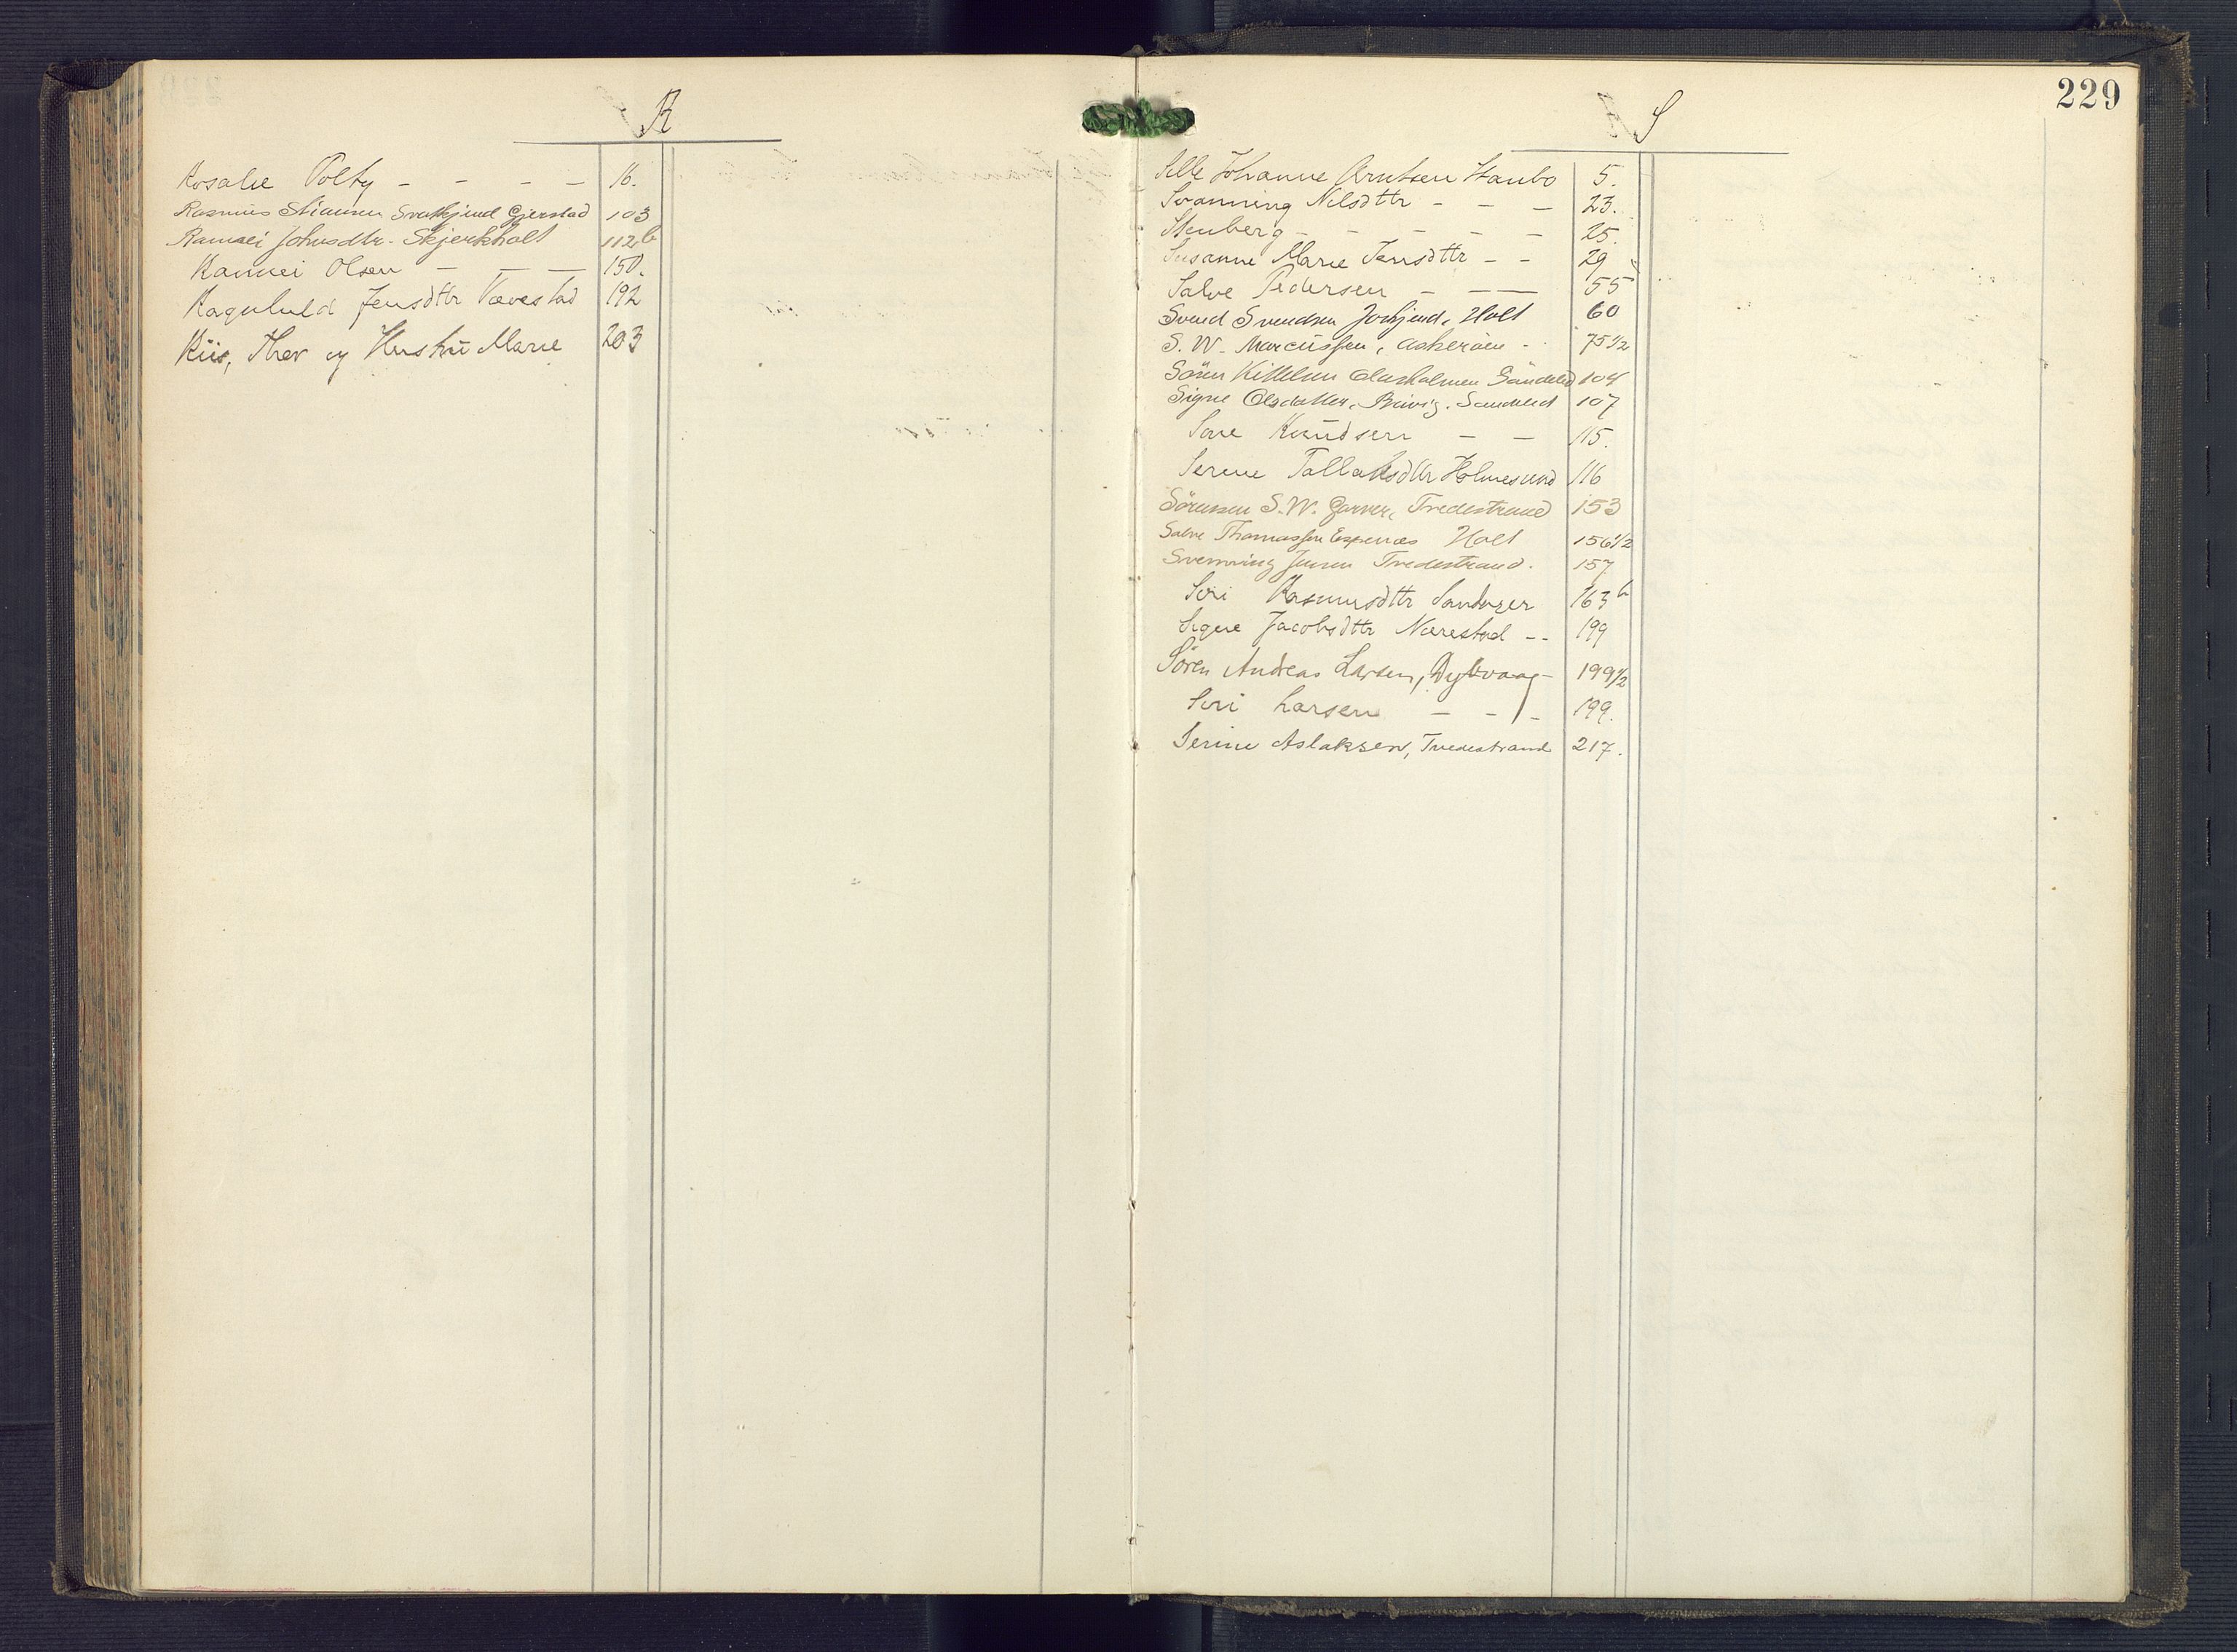 R
Rosalie Polty - - - - 16.
Rasmus Stiansen Svatkjend Gjerstad 103
Ramsei Johnsdtr. Skjerkholt 112b
Rannei Olsen - - - 150.
Ragnhild Jensdttr Vævestad 192
Riis, Ther og Hustrü Marie 203
229
S
Sille Johanne Arntsen Staubo 5.
Svanning Nilsdttr - - - 23.
Stenberg - - - - - 25.
Susanne Marie Jensdttr - - 29
Salve Pedersen - - - 55
Svend Svendsen Holt 60
S. W. Marcüssen, Askerøen - 75 1/2
Sören Kittelsen Söndeled 104
Signe Olsdatter, Söndeled 107
Sare Knüdsen - - 115.
Serine Tallaksdttr Holmesund 116
Sörensen S. W. Garver, Tvedestrand 153
Salve Thomassen Espenæs Holt 156 1/2
Svenning Jensen Tvedestrand. 157
Siri Rasmusdttr Sandager 163b
Signe Jacobsdttr Nærestad - - 199
Sören Andreas Larsen, Dybvaag - 199 1/2
Siri Larsen - - - 199.
Serine Aslaksen, Tvedestrand 217.